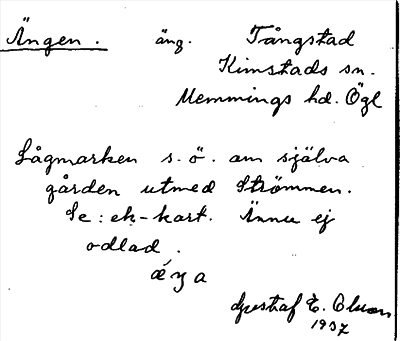 Ängen. äng. Tångstad
Kimstads sn.
Memmings hd. Ögl
Lågmarken s.ö. om själva
gården utmed Strömmen.
Se: ek-kart. Ännu ej
odlad.
Gustaf E. Olson
1937